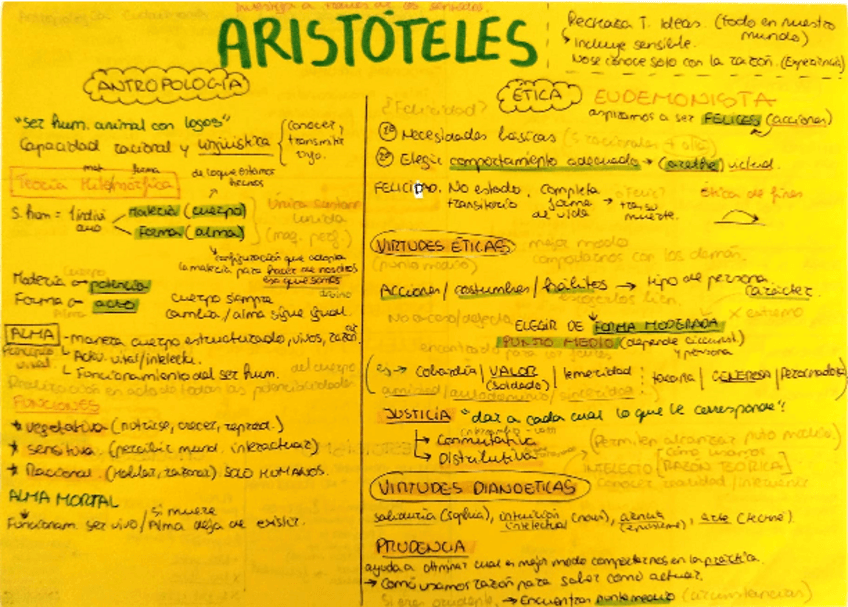 Investiga a través de los sentidos.
ARISTÓTELES
Rechaza T. Ideas. (todo en nuestro mundo)
↳ Incluye sensible.
No se conoce solo con la razón. (Experiencia)
ANTROPOLOGÍA
"ser hum. animal con logos"
Capacidad racional y lingüística
conocer y transmitir
mat forma
de lo que estamos hechos
Teoría Hilemórfica
S. hum = 1 individuo
Materia (cuerpo)
Forma (alma)
única
unida
configuración que adopta
la materia para hacer de nosotros
eso que somos
Cuerpo
Materia → potencia
Forma → acto
Alma
cuerpo siempre
cambia / alma sigue igual.
ALMA
Principio vital
- manera cuerpo estructurado, vivos,
↳ Activ. vital/intelect.
↳ Funcionamiento del ser hum.
del cuerpo
Realización en acto de todas las potencialidades
FUNCIONES
* vegetativa (nutrirse, crecer, reprod.)
* sensitiva (percibir mund. interactuar)
* Racional (Hablar, razonar) SOLO HUMANOS.
ALMA MORTAL
Funcionam. ser vivo / si muere
Alma deja de existir.
ÉTICA
EUDEMONISTA
aspiramos a ser FELICES (acciones)
¿Felicidad?
1º Necesidades básicas
2º Elegir comportamiento adecuado → (areté) virtud.
FELICIDAD. No estado transitorio. Completa forma de vida →
muerte.
Ética de fines
VIRTUDES ÉTICAS
(punto medio)
mejor modo
comportarnos con los demás.
Acciones / costumbres / hábitos → tipo de persona
carácter.
No exceso/defecto
x extremo
ELEGIR DE FORMA MODERADA
PUNTO MEDIO (depende circunst. y persona
(ej → Cobardía / VALOR (soldado) / temeridad
tacaña / GENEROSA /
JUSTICIA "dar a cada cual lo que le corresponde"
↳ Conmutativa
↳ Distributiva
(Permiten alcanzar punto medio)
Cómo usamos
INTELECTO [RAZÓN TEÓRICA]
Conocer realidad /
VIRTUDES DIANOÉTICAS
sabiduría (sophia), intuición intelectual (nous), ciencia (episteme), arte (techné)
PRUDENCIA
ayuda a cual es mejor modo comportarnos en la práctica.
→ Cómo usamos razón para saber cómo actuar.
Si eres prudente → Encuentras punto medio (circunstancias)